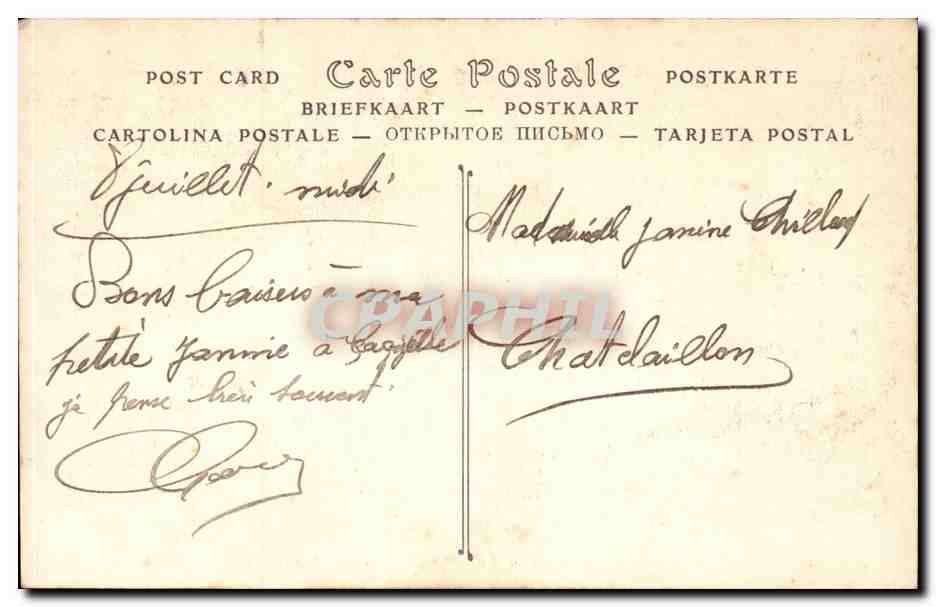 POST CARD Carte Postale POSTKARTE
BRIEFKAART — POSTKAART
CARTOLINA POSTALE — ОТКРЫТОЕ ПИСЬМО — TARJETA POSTAL
juillet. midi
Bons baisers à ma
petite Jannine à laquelle
je pense très souvent
Mademoiselle Janine
Chatelaillon
CPAPHIL